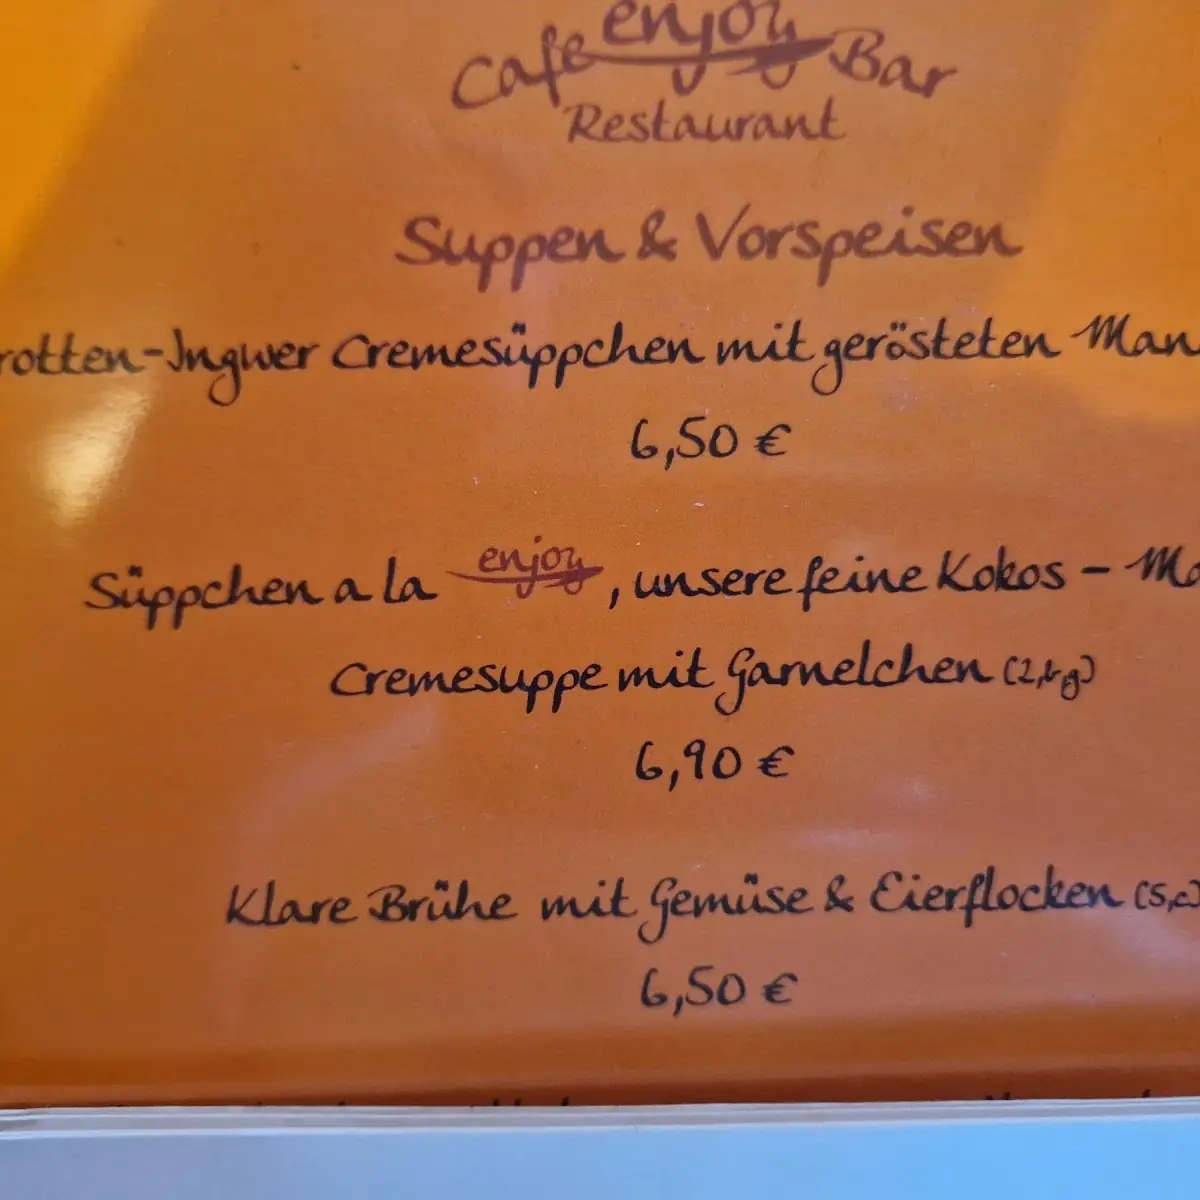 enjoy
Cafe Bar
Restaurant
Suppen & Vorspeisen
rotten-Ingwer Cremesüppchen mit gerösteten Man
6,50 €
Süppchen a la enjoy, unsere feine Kokos - Ma
Cremesuppe mit Garnelchen (2,b,g)
6,90 €
Klare Brühe mit Gemüse & Eierflocken (5,c)
6,50 €